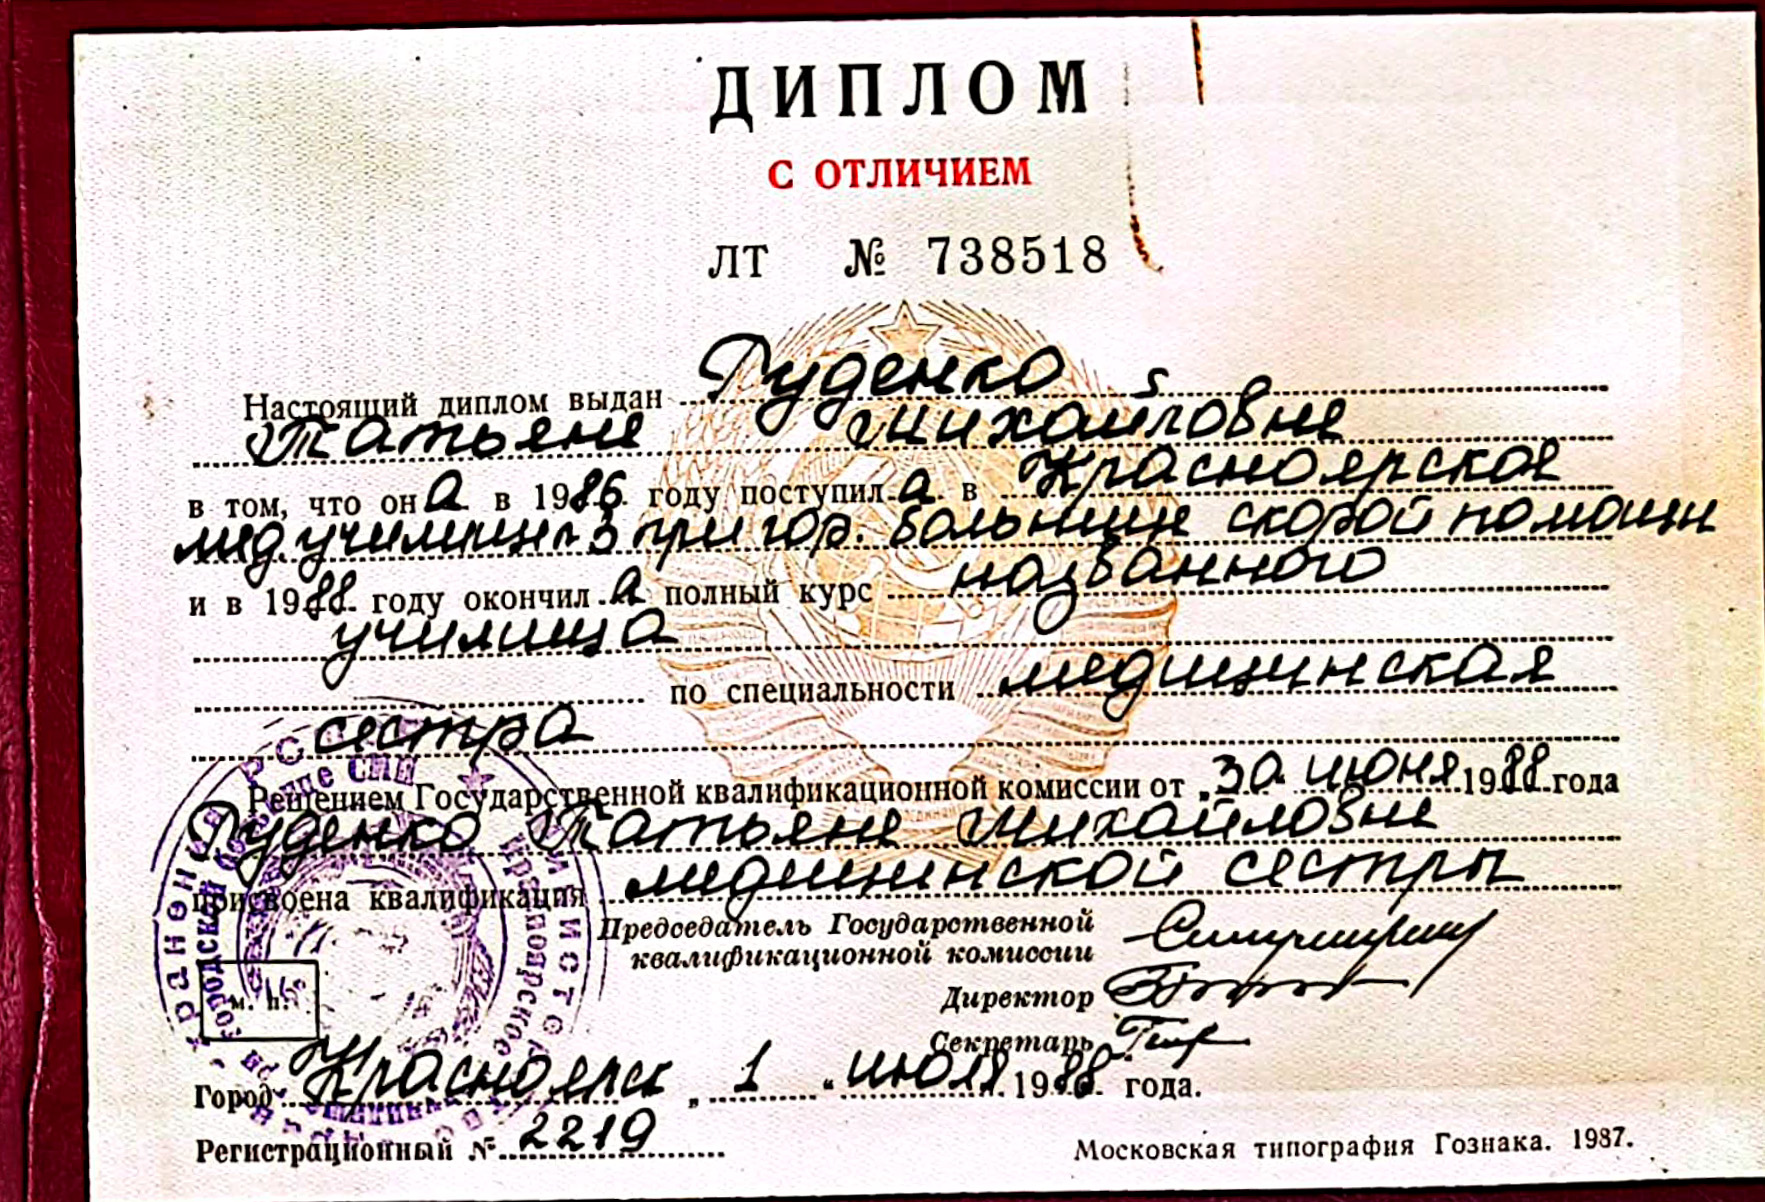 ДИПЛОМ
С ОТЛИЧИЕМ
ЛТ № 738518
Настоящий диплом выдан Руденко
Татьяне Михайловне
в том, что он а в 1986 году поступил а в Красноярское
мед. училище 3 при гор. больнице скорой помощи
и в 1988 году окончил а полный курс названного
училища
по специальности медицинская
сестра
Решением Государственной квалификационной комиссии от „30 июня 1988 года
Руденко Татьяне Михайловне
присвоена квалификация медицинской сестры
Председатель Государственной
квалификационной комиссии
Директор
Секретарь
м. п.
Город Красноярск „ 1 " июля 1988 года.
Регистрационный № 2219
Московская типография Гознака. 1987.